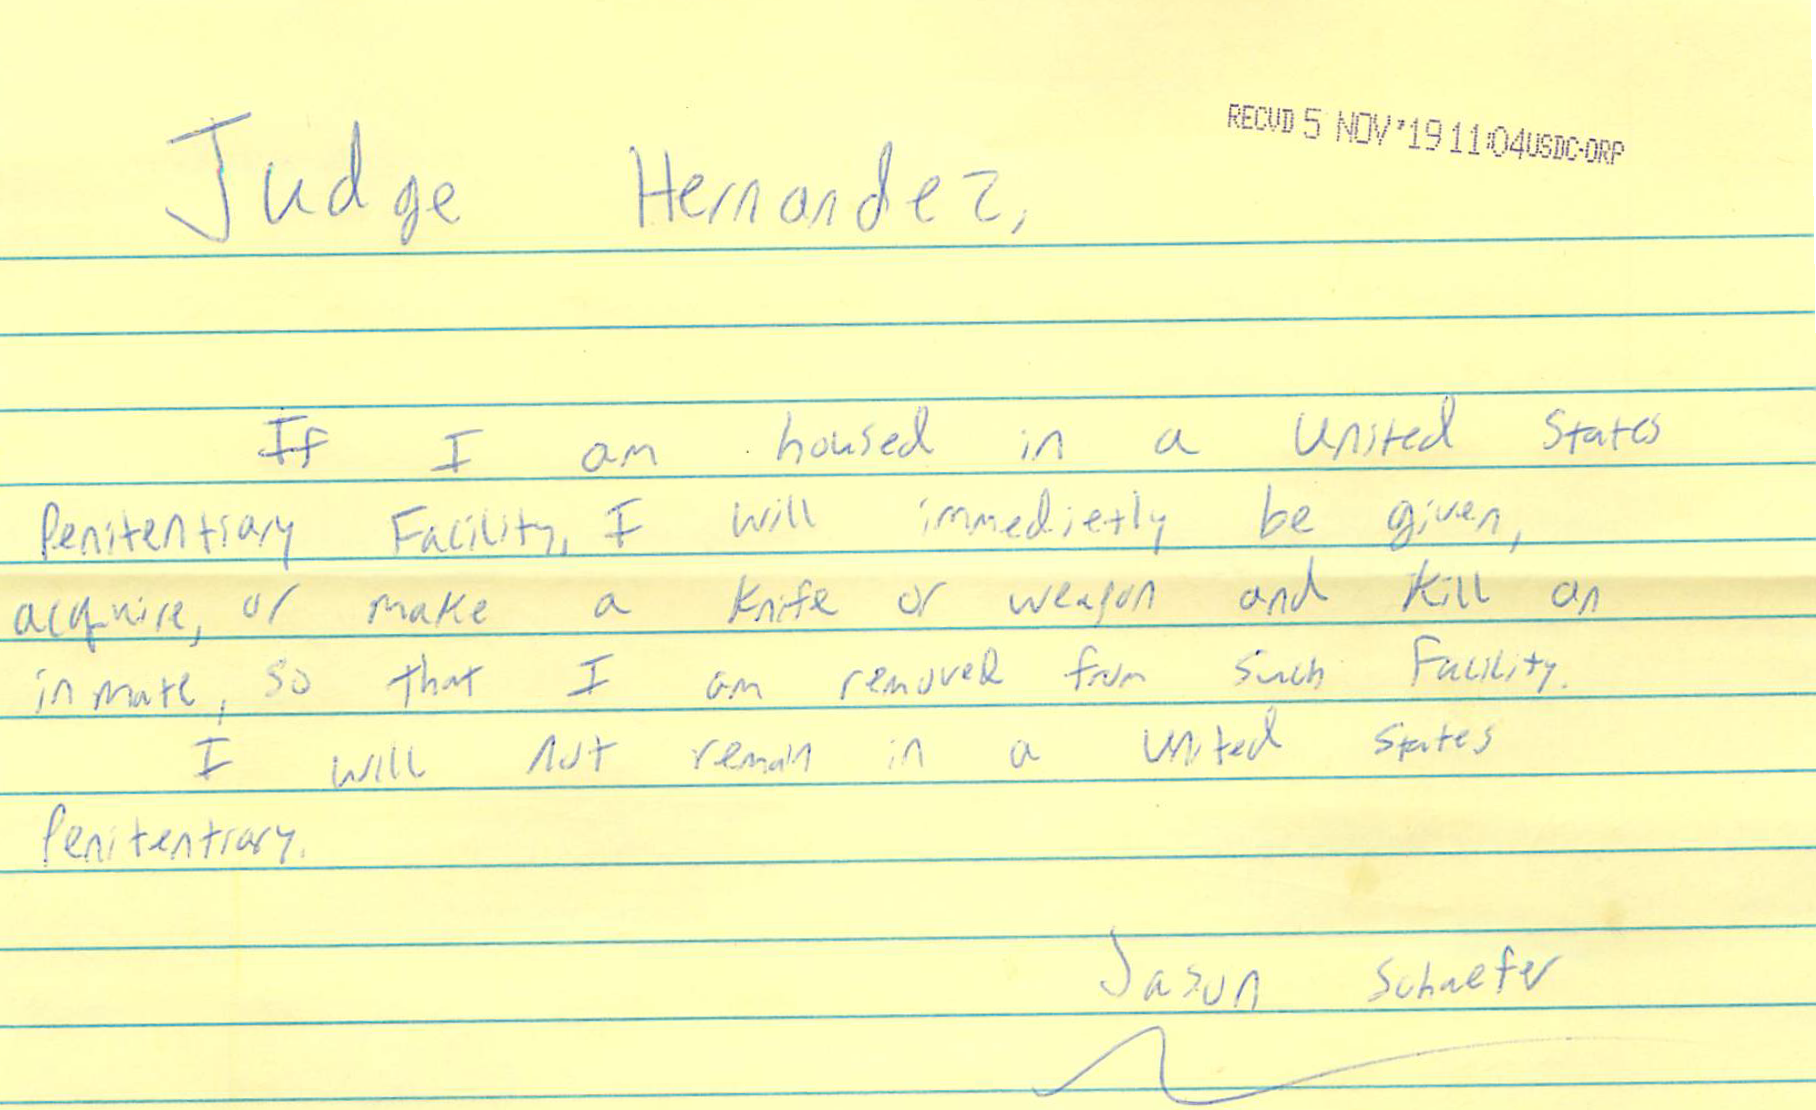 RECVD 5 NOV'19 11:04 USDC-ORP
Judge Hernandez,
If I am housed in a United States
Penitentiary Facility, I will immedietly be given,
acquire, or make a knife or weapon and kill an
inmate, so that I am removed from such Facility.
I will not remain in a United States
Penitentiary.
Jason Schaefer